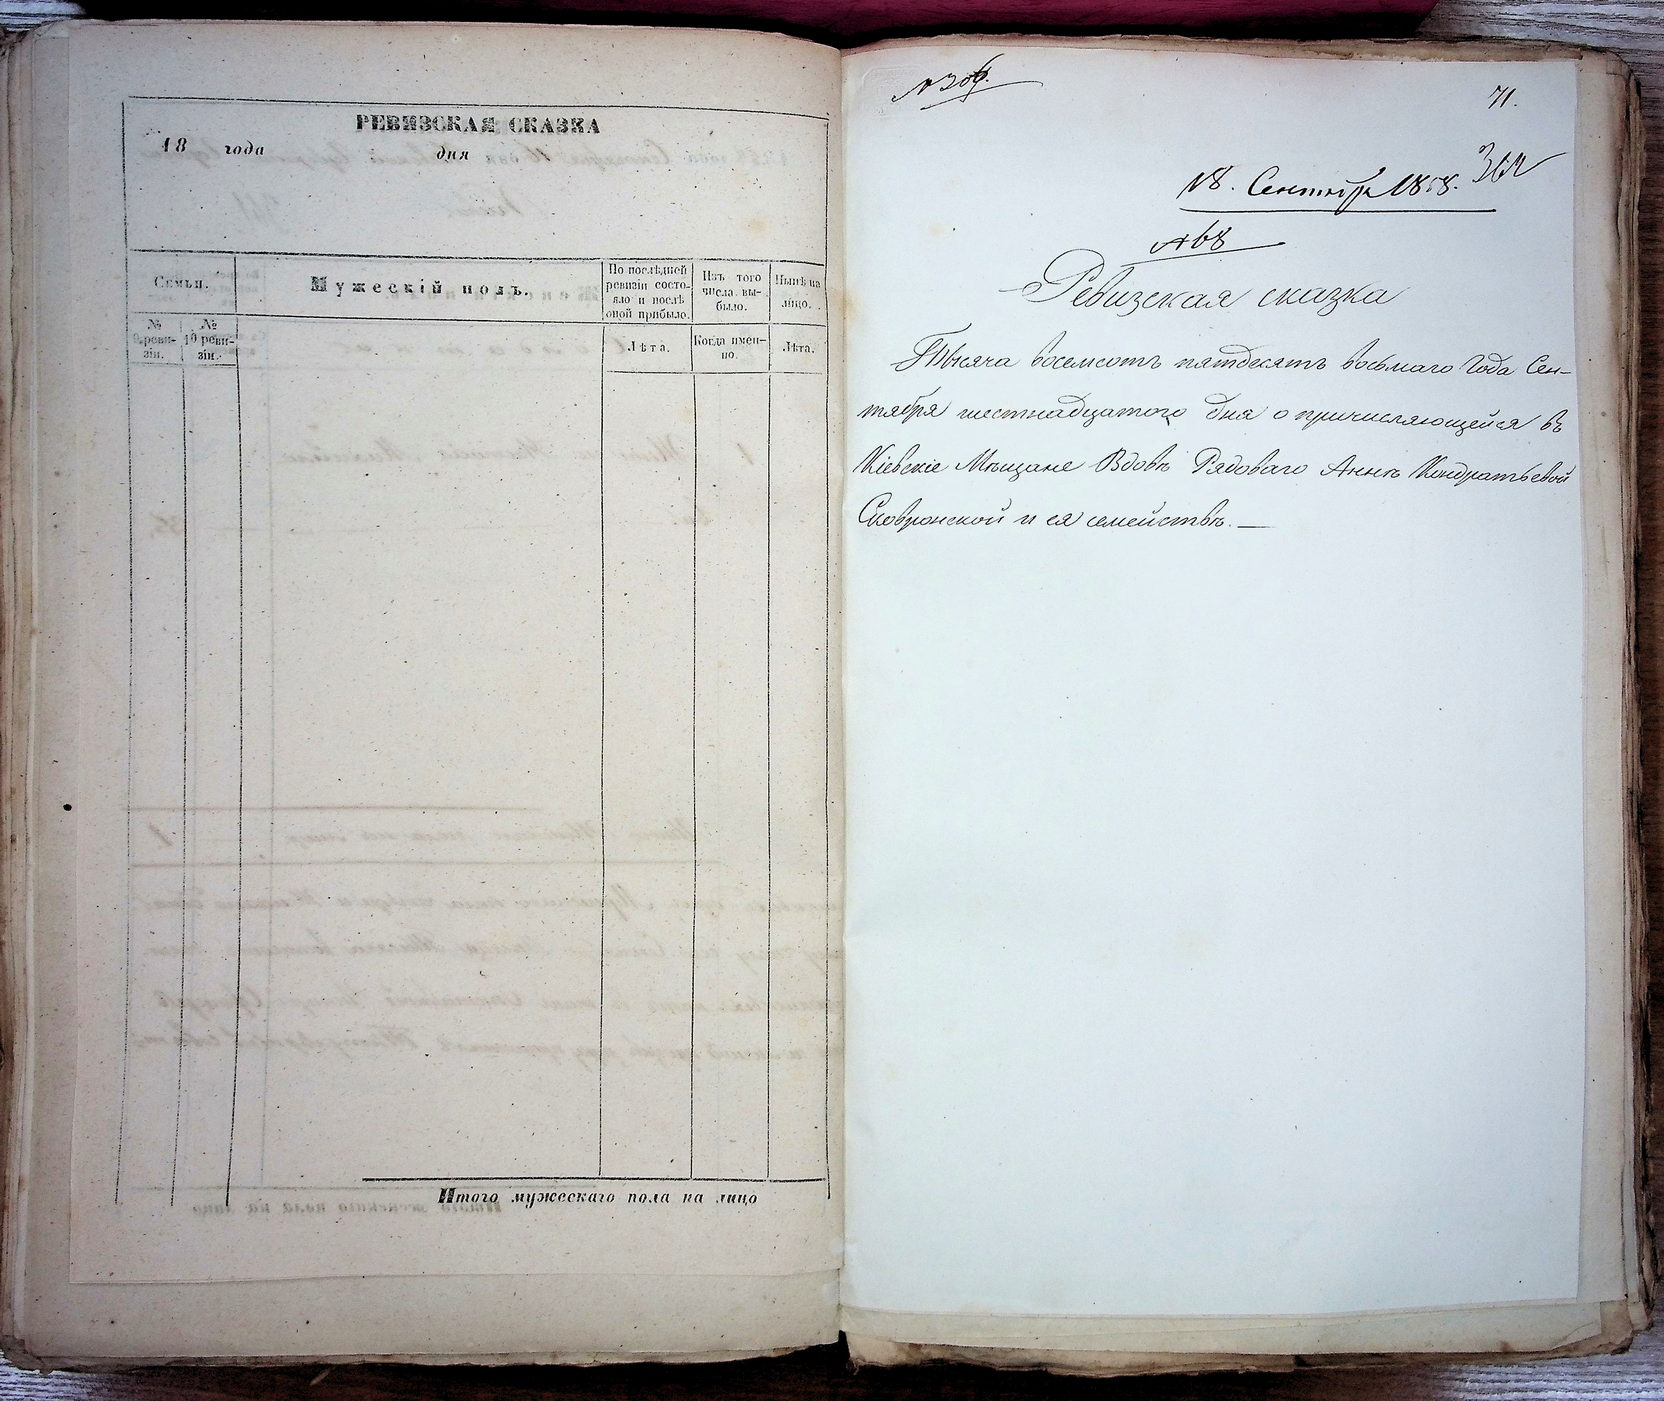 РЕВИЗСКАЯ СКАЗКА
18 года дня
Семьи.
Мужескій полъ.
По послѣдней ревизіи состояло и послѣ оной прибыло.
Изъ того числа выбыло.
Нынѣ на лицо.
№ 9 ревизіи.
№ 10 ревизіи.
Лѣта.
Когда именно.
Лѣта.
Итого мужескаго пола на лицо
71.
18. Сентября 1858.
№68
Ревизская сказка
Тысяча восемсотъ пятдесятъ восьмаго Года Сен-
тября шестнадцатого дня о причисляющейся въ
Кіевскіе Мѣщане Вдовѣ Рядоваго Аннѣ Кондратьевой
Сковронской и ея семействѣ.—